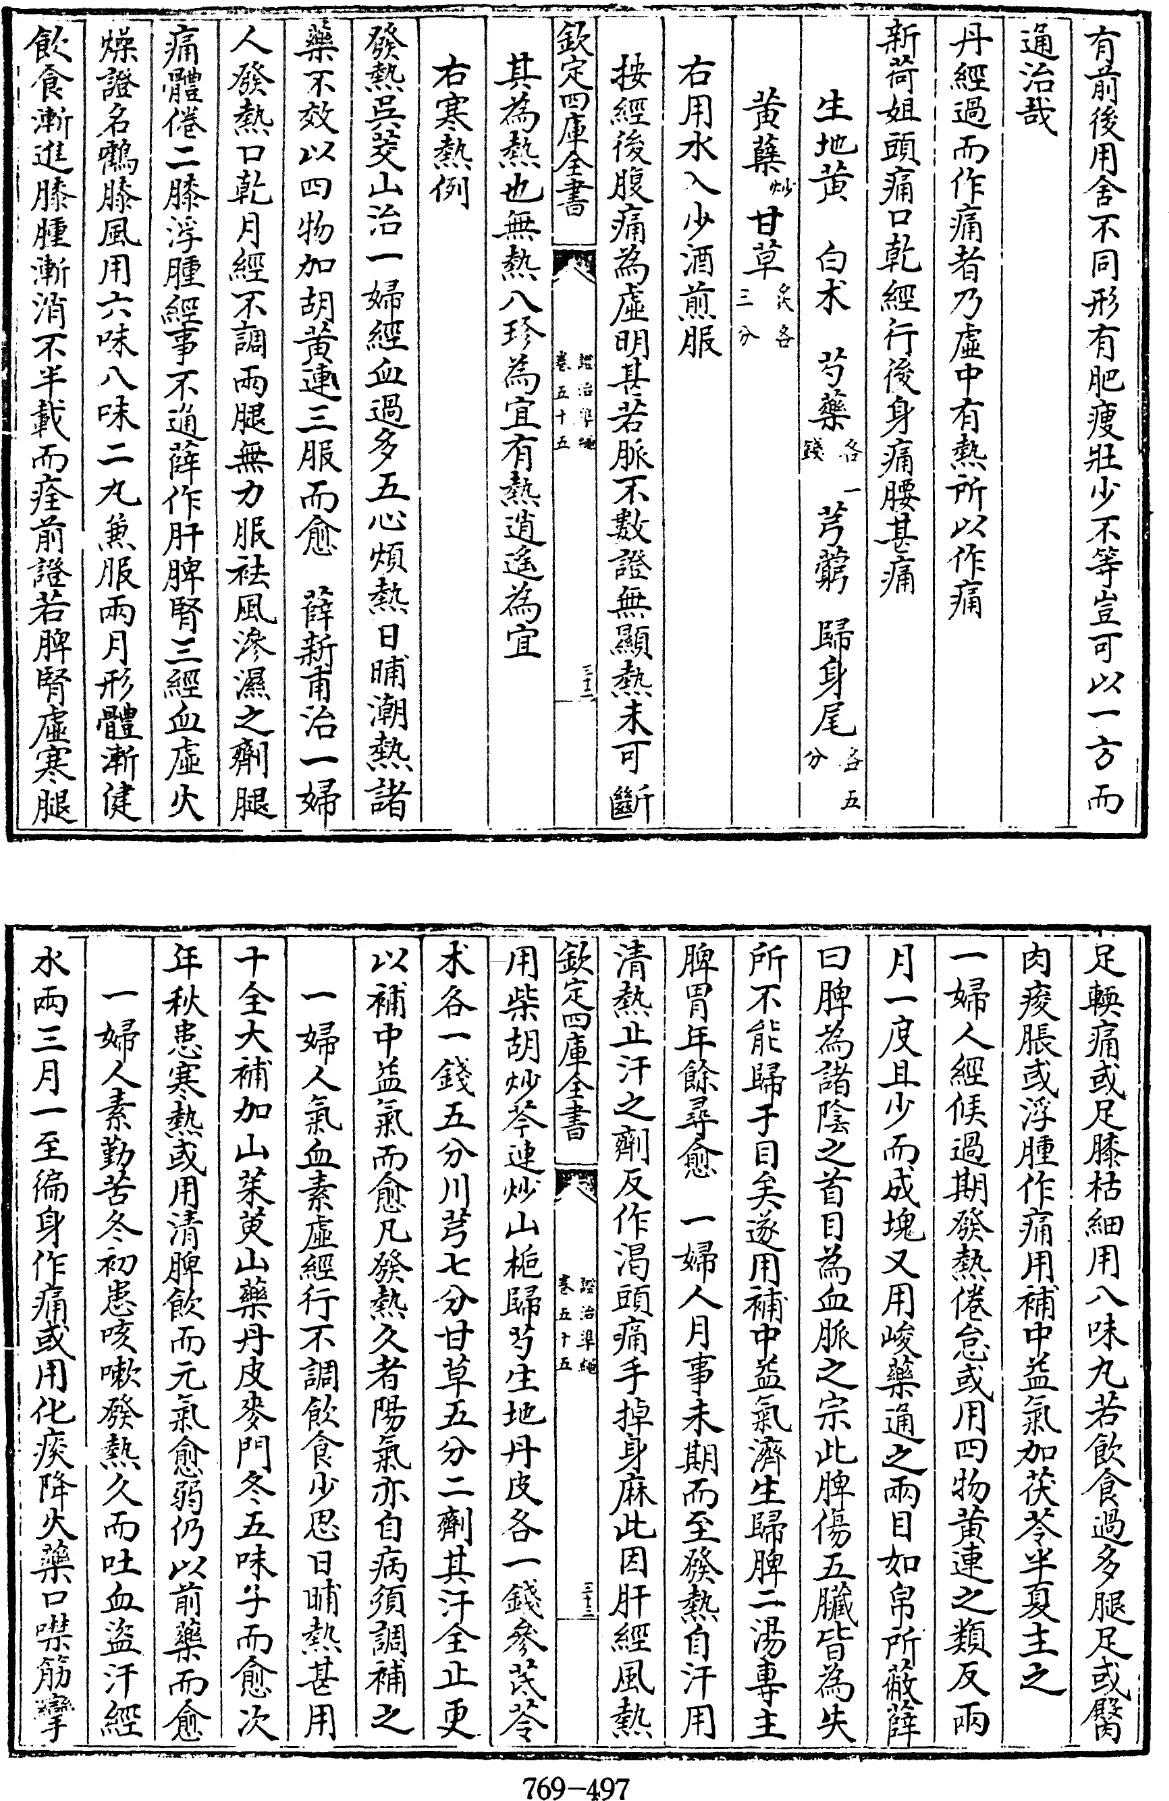 有前後用舍不同形有肥瘦壯少不等豈可以一方而
通治哉
丹經過而作痛者乃虛中有熱所以作痛
新荷姐頭痛口乾經行後身痛腰甚痛
生地黄 白术 芍藥各一錢 芎藭 歸身尾各五分
黄蘗炒 甘草炙各三分
右用水入少酒煎服
按經後腹痛為虛明甚若脈不數證無顯熱未可斷
欽定四庫全書 證治準繩 卷五十五 三十二
其為熱也無熱八珍為宜有熱逍遙為宜
右寒熱例
發熱吳茭山治一婦經血過多五心煩熱日晡潮熱諸
藥不效以四物加胡黄連三服而愈 薛新甫治一婦
人發熱口乾月經不調兩腿無力服祛風滲濕之劑腿
痛體倦二膝浮腫經事不通薛作肝脾腎三經血虛火
燥證名鶴膝風用六味八味二丸兼服兩月形體漸健
飲食漸進膝腫漸消不半載而痊前證若脾腎虛寒腿
足輭痛或足膝枯細用八味丸若飲食過多腿足或臀
肉痠脹或浮腫作痛用補中益氣加茯苓半夏主之
一婦人經候過期發熱倦怠或用四物黄連之類反兩
月一度且少而成塊又用峻藥通之兩目如帛所蔽薛
曰脾為諸陰之首目為血脈之宗此脾傷五臟皆為失
所不能歸于目矣遂用補中益氣濟生歸脾二湯專主
脾胃年餘尋愈 一婦人月事未期而至發熱自汗用
清熱止汗之劑反作渴頭痛手掉身麻此因肝經風熱
欽定四庫全書 證治準繩 卷五十五 三十三
用柴胡炒芩連炒山梔歸芍生地丹皮各一錢參芪苓
术各一錢五分川芎七分甘草五分二劑其汗全止更
以補中益氣而愈凡發熱久者陽氣亦自病須調補之
一婦人氣血素虛經行不調飲食少思日晡熱甚用
十全大補加山茱萸山藥丹皮麥門冬五味子而愈次
年秋患寒熱或用清脾飲而元氣愈弱仍以前藥而愈
一婦人素勤苦冬初患咳嗽發熱久而吐血盜汗經
水兩三月一至徧身作痛或用化痰降火藥口噤筋攣
769-497